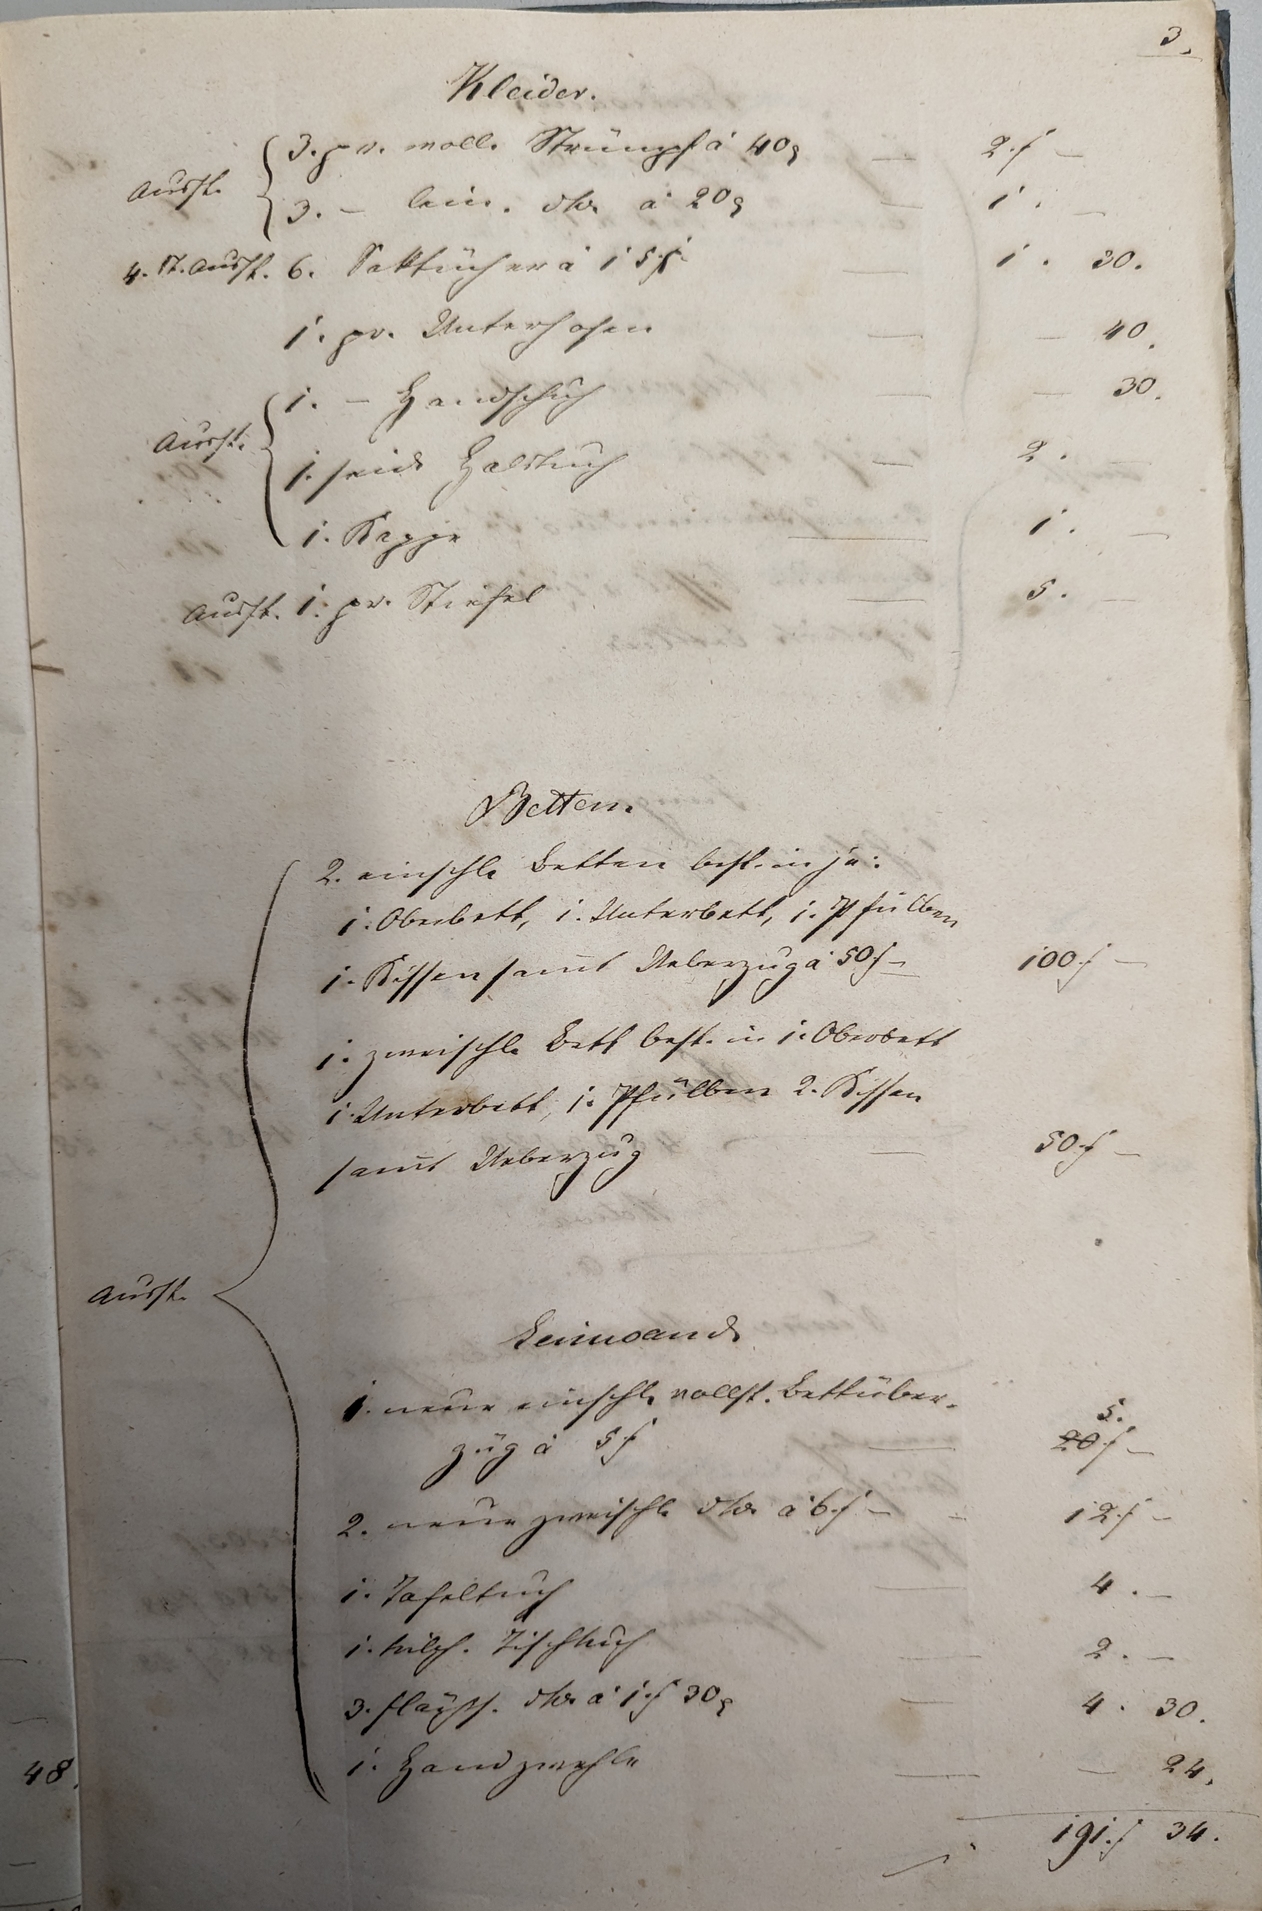 3.
Kleider.
Ausst. 3. pr. woll. Strümpf à 40x — 2 f —
3. — lein. dto. à 20x — 1. —
4. St. Ausst. 6. Saktücher à 15 x — 1. 30.
1. pr. Unterhosen — — 40.
Ausst. 1. — Handschuh — — 30.
1. seid. Halstuch — 2. —
1. Kappe — 1. —
Ausst. 1. pr. Stiefel — 5. —
Betten.
2. einschl. Betten best. in je:
1. Oberbett, 1. Unterbett, 1. Pfülben
1. Kissen samt Ueberzug à 50 f — 100 f —
1. zweischl. Bett best. in 1. Oberbett
1. Unterbett, 1. Pfülben 2. Kissen
samt Ueberzug — 50 f —
Ausst.
Leinwand
1. neue einschl. vollst. Bettüber-
5.
zug à 5 f — 20 f —
2. neue zweischl. dto. à 6 f — - 12 f —
1. Tafeltuch — 4. —
1. Tischtuch — 2. —
3. dto. à 1 f 30x — 4. 30.
1. Handzwehle — — 24.
191 f 34.
48.